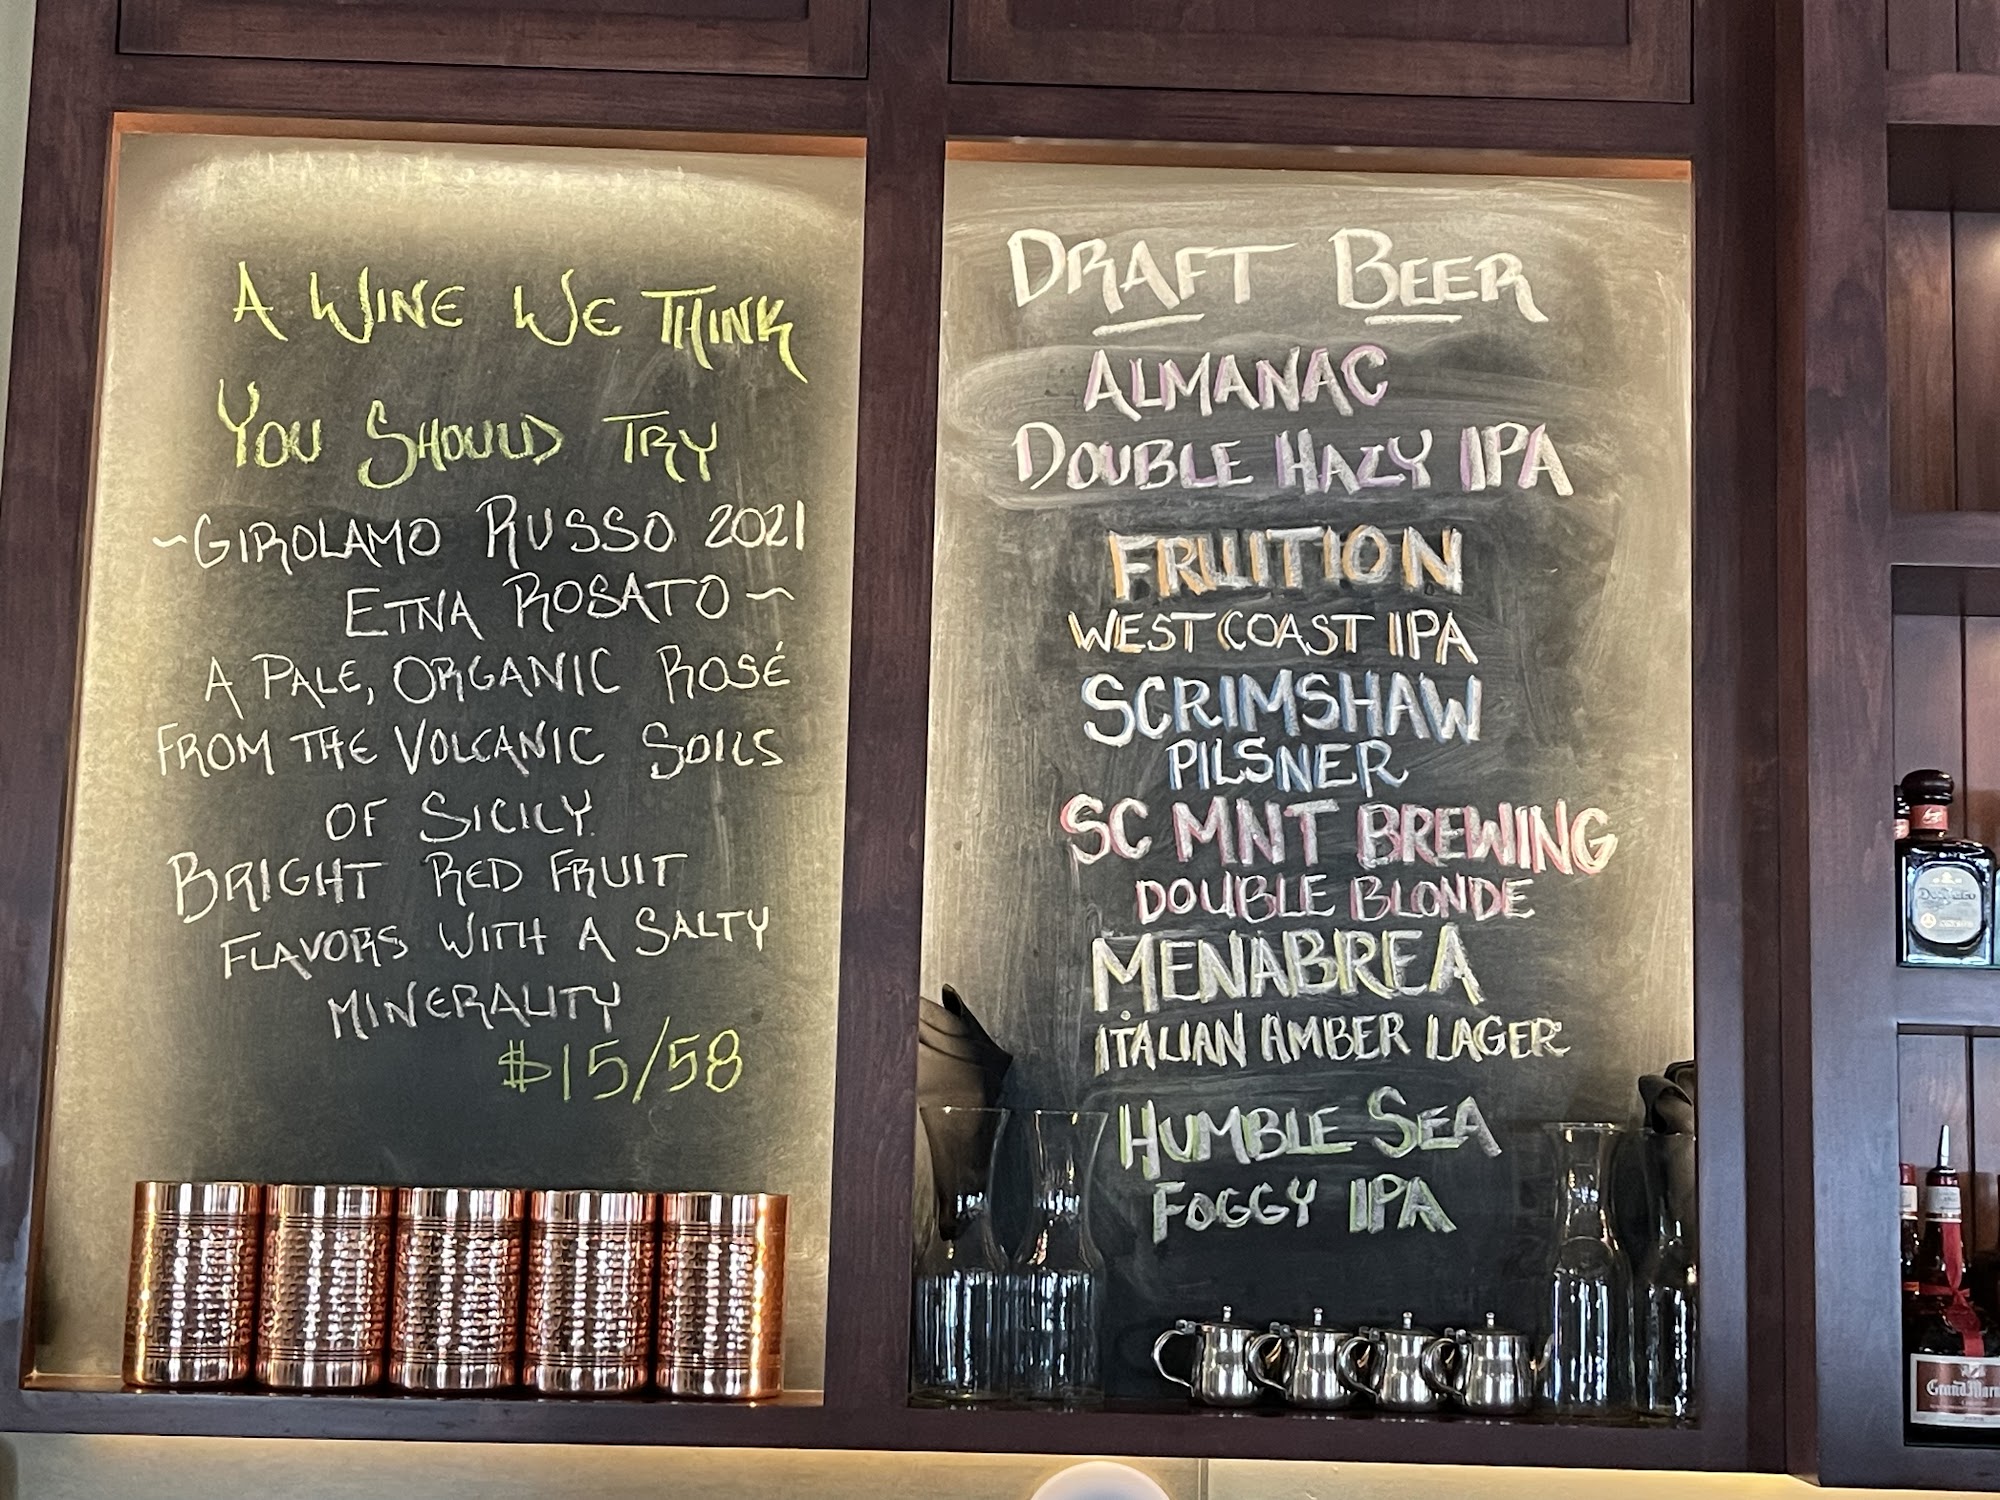 A WINE WE THINK
YOU SHOULD TRY
~GIROLAMO RUSSO 2021
ETNA ROSATO~
A PALE, ORGANIC ROSÉ
FROM THE VOLCANIC SOILS
OF SICILY.
BRIGHT RED FRUIT
FLAVORS WITH A SALTY
MINERALITY
$15/58
DRAFT BEER
ALMANAC
DOUBLE HAZY IPA
FRUITION
WEST COAST IPA
SCRIMSHAW
PILSNER
SC MNT BREWING
DOUBLE BLONDE
MENABREA
ITALIAN AMBER LAGER
HUMBLE SEA
FOGGY IPA